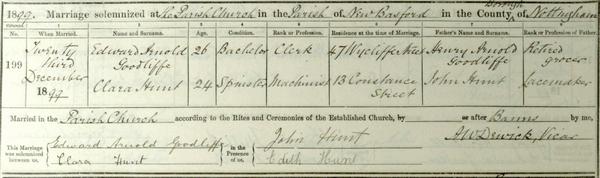 1899. Marriage solemnized at the Parish Church in the Parish of New Basford in the County Borough of Nottingham
No. When Married. Name and Surname. Age. Condition. Rank or Profession. Residence at the time of Marriage. Father's Name and Surname. Rank or Profession of Father.
199 Twenty third December 1899
Edward Arnold Goodliffe 26 Bachelor Clerk 47 Wycliffe Street Henry Arnold Goodliffe Retired grocer
Clara Hunt 24 Spinster Machinist 13 Constance Street John Hunt Lacemaker
Married in the Parish Church according to the Rites and Ceremonies of the Established Church, by or after Banns by me,
This Marriage was solemnized between us, Edward Arnold Goodliffe Clara Hunt in the Presence of us, John Hunt Edith Hunt A W Dewick, Vicar